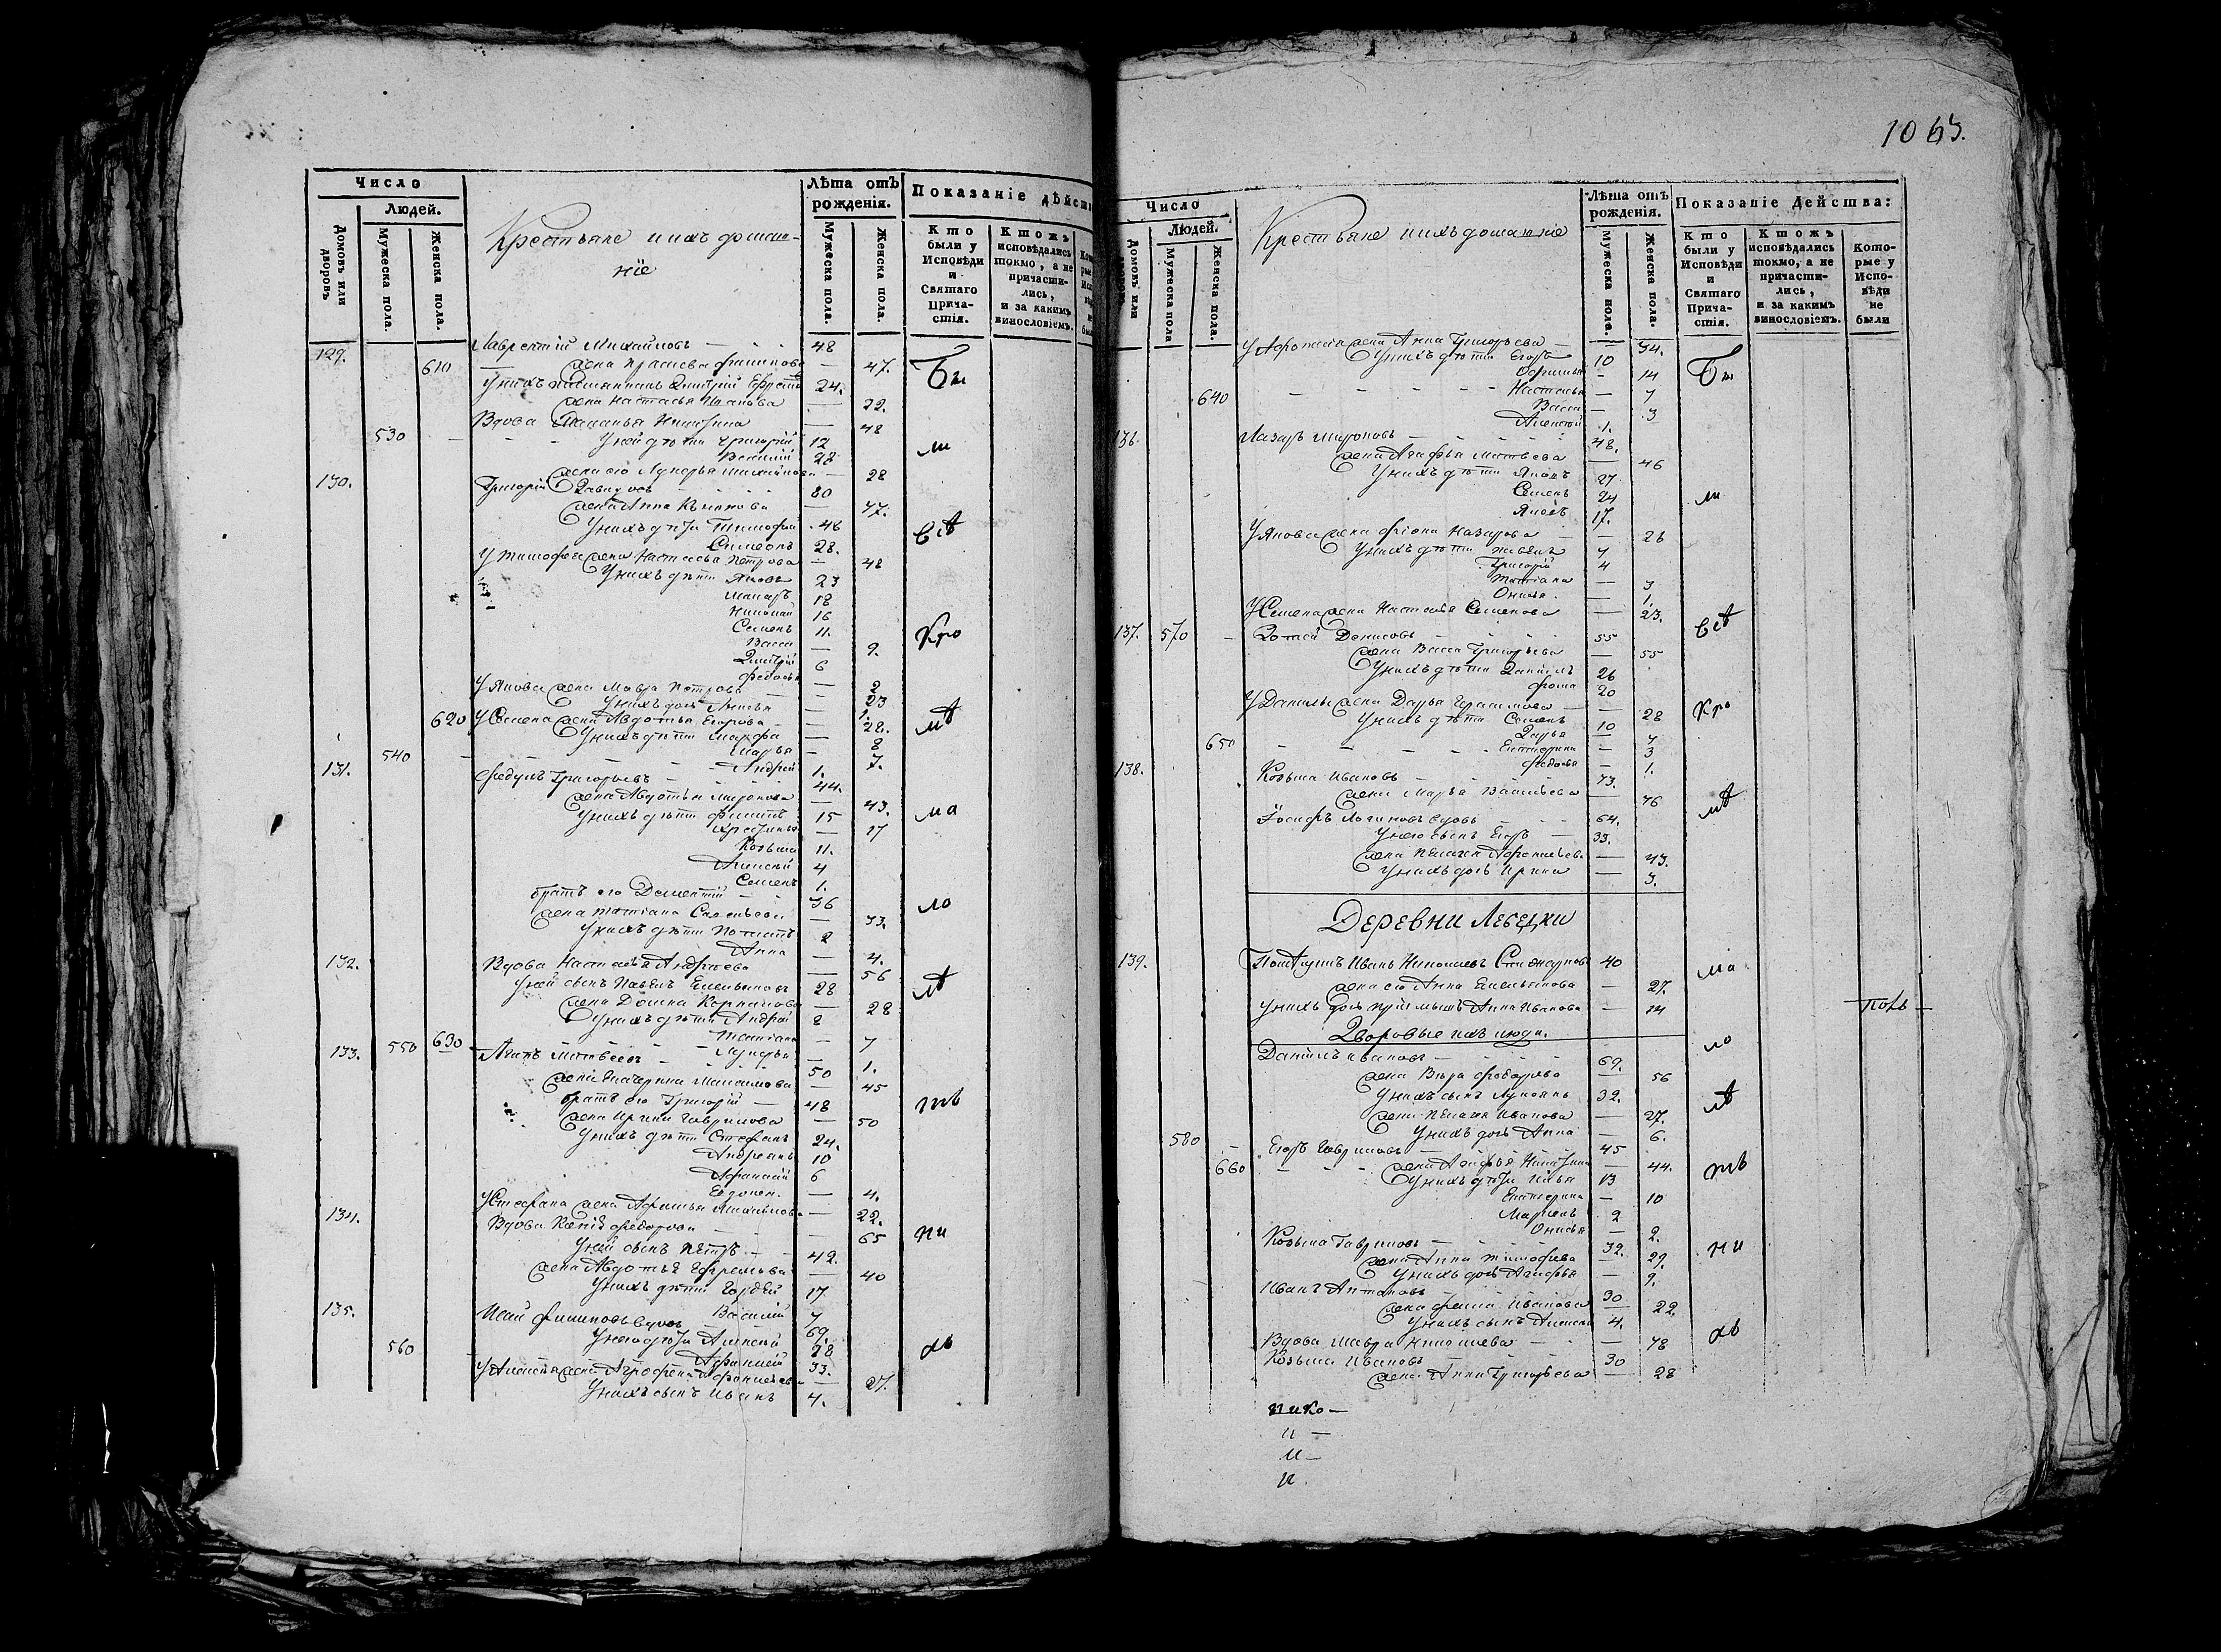 Число
Людей.
Домовъ или дворовъ
Мужеска пола.
Женска пола.
Крестьяне и ихъ домаш-
ніе
Лѣта отъ рожденія.
Мужеска пола.
Женска пола.
Показаніе дѣйств
Кто были у Исповѣди и Святаго Прича-стія.
Ктожъ исповѣдались токмо, а не причасти-лись, и за какимъ винословіемъ.
129. Лаврентій Михайловъ 48
610 жена 47. Бы
24.
жена Настасья 22.
Вдова Меланья Никитина 48
530 У ней дѣти Григорій 12 ли
Василій 28
жена его Лукерья Михайлова 28
130. Григорій Давыдовъ 80
жена Анна 77.
У нихъ дѣти Тимофей 46 всѣ
Симеонъ 28.
У Тимофея жена Настасья Петрова 48
У нихъ дѣти Яковъ 23
Макаръ 18
Николай 16
Семенъ 11. Кро
Васса 9.
Дмитрій 6
Федосья 2
У Якова жена Мавра Петрова 23
У нихъ дочь Анисья 1.
620 У Семена жена Авдотья Егорова 28. мѣ
У нихъ дѣти Марфа 8
Марья 7.
540 Андрей 1.
131. Федулъ Григорьевъ 44.
жена Авдотья Миронова 43.
У нихъ дѣти Филиппъ 15 ма
17
Козьма 11.
Алексей 4
Семенъ 1.
братъ его Дементій 36 ло
жена Татіана Савельева 33.
У нихъ дѣти 2
Анна 4.
132. Вдова Настасья Андреева 56
У ней сынъ Павелъ Емельяновъ 28 лѣ
жена Домна Карпова 28
У нихъ дѣти Андрей 8
Татіана 7
630 Лукерья 1.
133. 550 Матвеевъ 50
жена Екатерина Максимова 45
братъ его Григорій 48 тъ
жена Ирина Гаврилова 50
У нихъ дѣти Стефанъ 24.
Андреянъ 10
Афанасій 6
Евдоким. 4.
У Стефана жена Афимья 22.
134. Вдова Ксенія Федорова 65 ни
У ней сынъ Петръ 42.
жена Авдотья Ефремова 40
У нихъ дѣти Гордей 17
Василій 7
135. Исай Филиповъ вдовъ 69.
У него дѣти Алексей 38 хъ
560 Афанасій 33.
У Алексея жена Агрофена Афанасьева 27.
У нихъ сынъ Иванъ 4.
1063.
Число
Людей.
Домовъ или дворовъ
Мужеска пола
Женска пола.
Крестьяне и ихъ домашніе
Лѣта отъ рожденія.
Мужеска пола.
Женска пола.
Показаніе Действа:
Кто были у Исповѣди и Святаго Прича-стія.
Ктожъ исповѣдались токмо, а не причасти-лись, и за какимъ винословіемъ.
Кото-рые у Испо-вѣди не были
У Афонасія жена Анна Григорьева 34.
У нихъ дѣти Егоръ 10 Бы
Офимья 14
640 Настасья 7
Васса 3
Алексей 1.
136. Лазарь Мироновъ 48.
жена Агафья Матвеева 46
У нихъ дѣти Яковъ 27
Семенъ 24 ли
Яковъ 17.
У Якова жена Фіона Назарова 26
У нихъ дѣти 7
Григорій 4
Татіана 3
1.
У Семена жена Настасья Семенова 23. всѣ
137. 570 Зотей Денисовъ 55
жена Васса Григорьева 55
У нихъ дѣти Данилъ 26
Фома 20
У Данилы жена Дарья Герасимова 28 Кро
У нихъ дѣти Семенъ 10
Дарья 7
650 Екатерина 3
Федосья 1.
138. Козьма Ивановъ 73.
жена Марья Васильева 76 мѣ
Іосифъ Логиновъ вдовъ 64.
У него сынъ Егоръ 33.
жена Пелагея Афанасьева 43.
У нихъ дочь Ирина 3.
Деревни Лебедки
139. Иванъ Николаевъ 40 ма
жена его Анна Емельянова 27.
У нихъ дочь Анна Иванова 14
Дворовые ихъ люди. ло
Данилъ Ивановъ 69.
жена Вѣра Федорова 56
У нихъ сынъ Лукьянъ 32. лѣ
жена Пелагея Иванова 27.
У нихъ дочь Анна 6.
580 Егоръ Гавриловъ 45
660 жена Агафья Никитина 44. тъ
У нихъ дѣти Илья 13
Екатерина 10
2
Онисья 2.
Козьма Гавриловъ 32. ни
жена Анна Тимофеева 29.
У нихъ дочь Агафья 9.
Иванъ Антоновъ 30
жена Иванова 22.
У нихъ сынъ Алексей 4. хъ
Вдова Мавра 78
Козьма Ивановъ 30
жена Анна Григорьева 28
нико —
и —
и —
и.